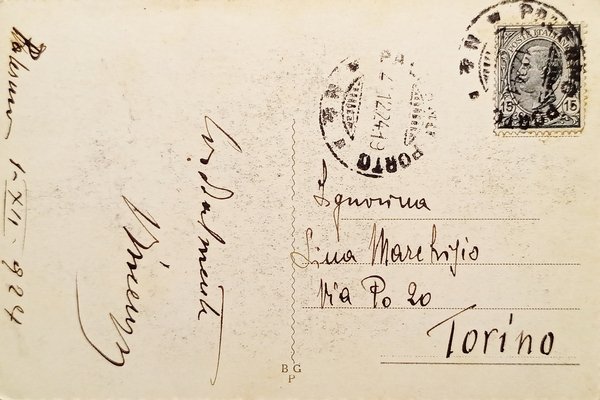 Palermo 1-XII-924
Cordialmente
Signorina
Lina Marchisio
Via Po 20
Torino
BG
P
POSTE ITALIANE
15 15
PORTO
2.12.24.19